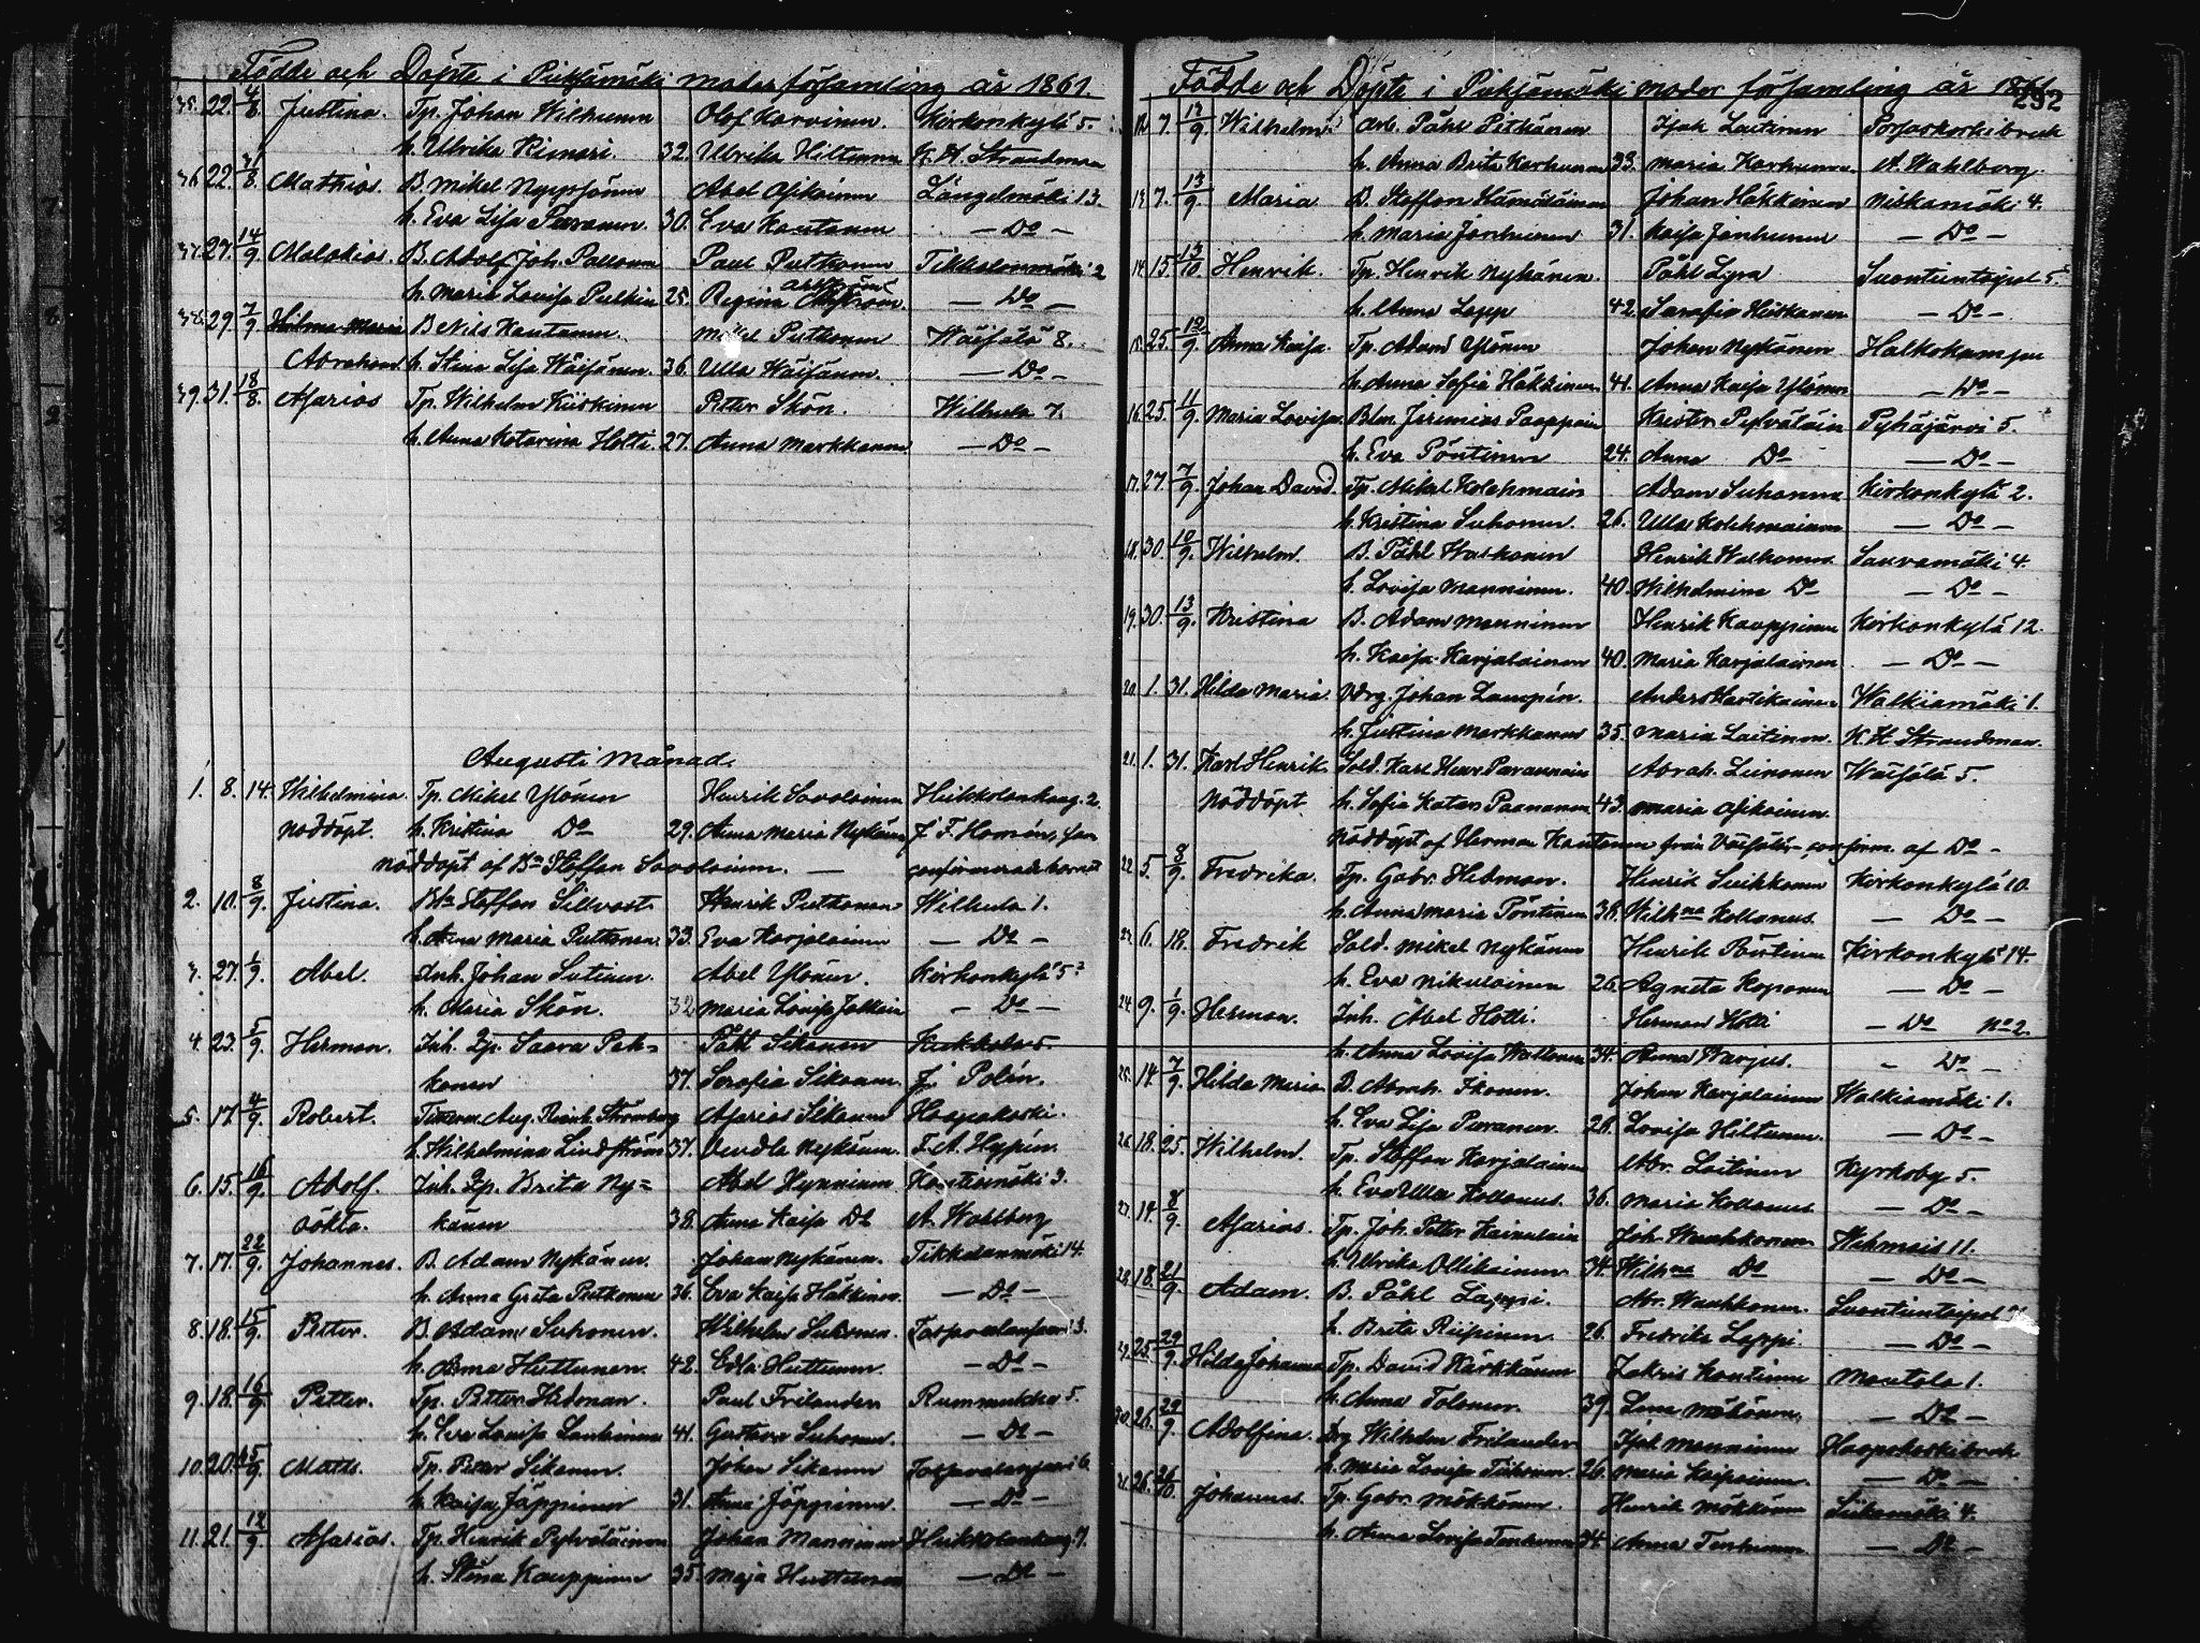 Födde och Döpte i Pieksämäki moder församling år 1861.
35. 22. 4/8. Justina. Tp. Johan Wilhunen Olof Korvinen. Kirkonkylä 5.
h. Ulrika Rimari. 32. Ulrika Hiltunen K. H. Strandman
36. 22. 21/8. Mathias. B. Mikel Nyyssönen Abel Asikainen Längelmäki 13.
h. Eva Lisa Puranen. 30. Eva Kautanen — Do —
37. 27. 14/9. Malakias. B. Adolf Joh. Pallonen Paul Putkonen Tikkalanmäki 2
h. Maria Lovisa Pulkin 25. Regina — Do —
38. 29. 7/9. Hilma Maria B Nils Kautanen. Mikel Putkonen Wäisälä 8.
Abraham. h. Stina Lisa Wäisänen. 36. Ulla Wäisänen. — Do —
39. 31. 18/8. Asarias Tp. Wilhelm Kiiskinen Petter Skön. Wilhula 7.
h. Anna Katarina Holti. 27. Anna Markkanen — Do —
Augusti Månad.
1. 8. 14. Wilhelmina. Tp. Mikel Ylönen Henrik Savolainen Heikkolankang. 2.
Nöddöpt. h. Kristina Do 29. Anna Maria Nykänen J. F. Homén, som
Nöddöpt af Bn Staffan Savolainen. — confirmerade barnet
2. 10. 8/9. Justina. Staffan Sillvast Henrik Putkonen Wilhula 1.
h. Anna Maria Putkonen. 33. Eva Karjalainen — Do —
3. 27. 1/9. Abel. Inh. Johan Sutinen. Abel Ylönen. Kirkonkylä 5
h. Maria Skön. 32 Maria Lovisa — Do —
4. 23. 5/9. Herman. Inh. Zp. Saara Pek= Påhl Sikanen Heikkola 5.
konen 37. Serafia Sikanen. J. Polén.
5. 17. 4/9. Robert. Aug. Reinh. Strömberg Asarias Sikanen Haapakoski.
h. Wilhelmina Lindström 37. Vendla Nykänen. F. A. Hyppén.
6. 15. 16/9. Adolf. Inh. Zp. Brita Ny= Abel Hynninen Kontiomäki 3.
oäkta. känen 38. Anna Kaisa Do A. Wahlberg
7. 17. 22/9. Johannes. B. Adam Nykänen. Johan Nykänen. Tikkalanmäki 14.
h. Anna Greta Putkonen 36. Eva Kaisa Häkkinen. — Do —
8. 18. 15/9. Petter. B. Adam Suhonen. Wilhelm Suhonen. 3.
h. Anna Huttunen. 42. Edla Huttunen. — Do —
9. 18. 16/9. Petter. Tp. Petter Hedman. Paul Frilander Rummukka 5.
h. Eva Lovisa Lankinen 41. Gustava Suhonen. — Do —
10. 20. 15/9. Matts. Tp. Petter Sikanen. Johan Sikanen 6.
h. Kaisa Jäppinen 31. Anna Jäppinen. — Do —
11. 21. 12/9. Asarias. Tp. Henrik Pylvänäinen Johan Manninen Heikkolankang. 7.
h. Stina Kauppinen 35. Maja Huttunen — Do —
Födde och Döpte i Pieksämäki moder församling år 1861.
292
12. 7. 12/9. Wilhelm. Arb. Påhl Pitkänen Isak Laitinen Porsaskoskibruk
h. Anna Brita Karhunen 33. Maria Karhunen. A. Wahlberg.
13. 7. 13/9 Maria B. Staffan Hämäläinen Johan Häkkinen Niskamäki 4.
h. Maria Janhunen 31. Kaisa Janhunen — Do —
14. 15. 13/10 Henrik. Tp. Henrik Nykänen. Påhl Lyra Suontientaipal 5.
h. Anna Lapp 42. Serafia Heiskanen — Do —
15. 25. 12/9. Anna Kaisa. Tp. Adam Ylönen Johan Nykänen Halkokumpu
h. Anna Sofia Häkkinen 41. Anna Kaisa Ylönen — Do —
16. 25. 11/9. Maria Lovisa. Jeremias Paappain Krister Pylvälain Pyhäjärvi 5.
h. Eva Pöntinen 24. Anna Do — Do —
17. 27. 7/9. Johan David. Tp. Mikel Kolehmain Adam Suhonen Kirkonkylä 2.
h. Kristina Suhonen. 26. Ulla Kolehmainen — Do —
18. 30. 10/9. Wilhelm. B. Påhl Walkonen Henrik Walkonen Sauvamäki 4.
h. Lovisa Manninen. 40. Wilhelmina Do — Do —
19. 30. 13/9. Kristina B. Adam Manninen Henrik Kauppinen Kirkonkylä 12.
h. Kaisa Karjalainen 40. Maria Karjalainen — Do —
20. 1. 31. Hilda Maria. Johan Lampén. Anders Hartikainen Walkiamäki 1.
h. Justina Markkanen 35. Maria Laitinen. K. H. Strandman.
21. 1. 31. Karl Henrik Sold. Karl Henr. Abrah. Leinonen Wäisälä 5.
Nöddöpt h. Sofia Katar. Paananen 43. Maria Asikainen
Nöddöpt af Herman Kautanen från Väisälä, confirm. af Do —
22. 5. 8/9. Fredrika. Tp. Gabr. Hedman. Henrik Kirkonkylä 10.
h. Anna Maria Pöntinen 38. Wilhna Kollanus. — Do —
23. 6. 18. Fredrik Sold. Mikel Nykänen Henrik Pöntinen Kirkonkylä 14.
h. Eva Nikulainen 26. Agneta Koponen — Do —
24. 9. 1/9. Herman. Inh. Abel Holti. Herman Holti — Do No 2.
h. Anna Lovisa Wallonen 34. Anna Warjus. — Do —
25. 14. 7/9. Hilda Maria B. Abrah. Ikonen. Johan Karjalainen Walkiamäki 1.
h. Eva Lisa Puranen. 26. Lovisa Hiltunen. — Do —
26. 18. 25. Wilhelm. Tp. Staffan Karjalainen Abr. Laitinen Kyrkoby 5.
h. Eva Ulla Kollanus. 36. Maria Kollanus — Do —
27. 14. 8/9. Asarias. Tp. Joh. Petter Kainulain Joh. Waahkonen 11.
h. Ulrika Ollikainen 34. Wilhna Do — Do —
28. 18. 21/9. Adam. B. Påhl Lappi. Abr. Waahkonen. Suontientaipal
h. Brita Riipinen. 26. Fredrika Lappi. — Do —
29. 25. 29/9. Hilda Johanna Tp. David Kärkkäinen Zakris Kautinen Montola 1.
h. Anna Tolonen. 39. Lena Mäkönen. — Do —
30. 26. 29/9. Adolfina. Drg Wilhelm Frilander Isak Manninen Haapakoskibruk
h. Maria Lovisa Tiihonen. 26. Maria Kaipainen. — Do —
31. 26. 26/10. Johannes. Tp. Gabr. Mökkönen. Henrik Mökkönen Siikamäki 4.
h. Anna Lovisa Tenhunen 34. Anna Tenhunen — Do —